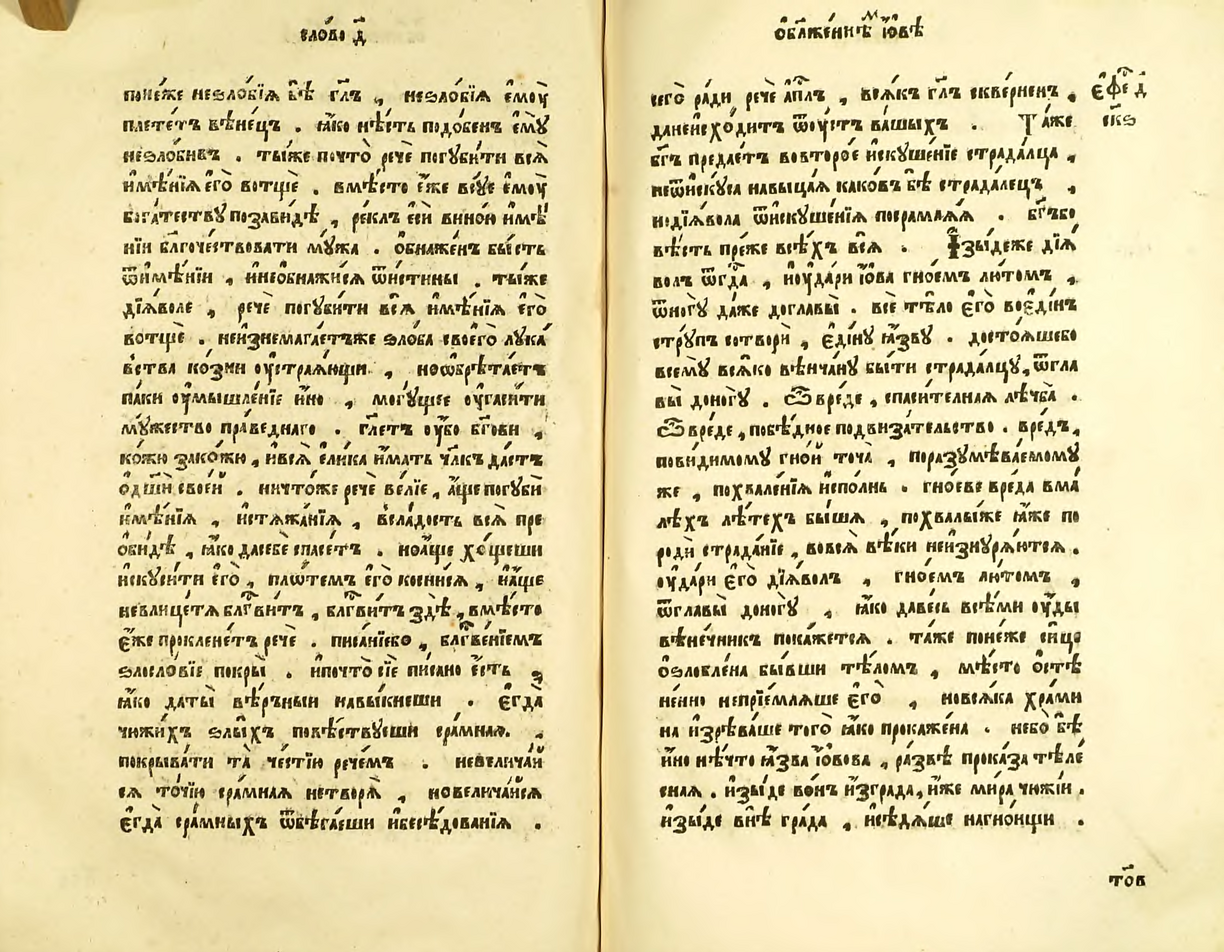 сло́во д҃
поне́же неѕло́бїѧ бѣ̀ гл҃ъ , неѕло́бїѧ є҆моꙋ̀
плете́тъ вѣне́цъ . ꙗ҆́ко нѣ́сть подо́бенъ є҆мꙋ̀
неѕло́бивъ . ты́же почто̀ речѐ погꙋби́ти всѧ̀
и҆мѣ́нїѧ є҆го̀ вотщѐ . вмѣ́сто є҆́же всꙋ́е є҆моꙋ̀
бога́тествꙋ позави́дѣ , ре́клъ є҆сѝ вино́й и҆мѣ́
нїи благоче́ствовати мꙋ́жа . ѡ҆бнаже́нъ бы́сть
ѿи҆мѣ́нїи , и҆неѡ҆бнажи́сѧ ѿи҆́стины . ты́же
дїѧ́воле , речѐ погꙋби́ти всѧ̀ и҆мѣ́нїѧ є҆го̀
вотщѐ . неи҆знемага́етъже ѕло́ба своего̀ лꙋка́
вства ко́зни оу҆страѧ́ющи , ноѡ҆брѣта́етъ
па́ки оу҆мышле́нїе и҆́но , могꙋ́щее оу҆гаси́ти
мꙋ́жество пра́веднаго . гл҃етъ оу҆́бо бг҃ови ,
ко́жꙋ зако́жꙋ , и҆всѧ̀ є҆ли́ка и҆́мать чл҃къ да́стъ
ѡ҆дш҃и свое́й . ничто́же речѐ ве́лїе , а҆́ще погꙋбѝ
и҆мѣ́нїѧ , и҆стѧжа́нїѧ , всла́дость всѧ̀ пре
ѻ҆би́дѣ , ꙗ҆́ко дасебѐ спасе́тъ . ноа҆́ще хо́щеши
и҆скꙋси́ти є҆го̀ , пло́темъ є҆го̀ косни́сѧ , и҆а҆́ще
невлице́тѧ блг҃ви́тъ , блг҃ви́тъ здѣ̀ , вмѣ́сто
є҆́же проклене́тъ речѐ . писа́нїебо , блг҃ве́нїемъ
ѕлосло́вїе покры̀ . и҆почто̀ сїѐ пи́сано є҆́сть ,
ꙗ҆́ко да ты̀ вѣ́рныи навы́кнеши . є҆гда̀
чюжи́хъ ѕлы́хъ повѣ́ствꙋеши сра́мнаѧ ,
покрыва́ти та̀ че́стїю рече́мъ . невелича́й
сѧ то́чїю сра́мнаѧ нетворѧ̀ , новелича́йсѧ
є҆гда̀ сра́мныхъ ѿбѣга́еши и҆бесѣ́дованїѧ .
ѻ҆блаже́ннѣм і҆́овѣ
сего̀ ра́ди речѐ а҆пл҃ъ , всѧ́къ гл҃ъ скве́рненъ ,
данеи҆схо́дитъ ѿоу҆́стъ ва́шыхъ . Та́же
бг҃ъ предае́тъ вовторо́е и҆скꙋше́нїе страда́лца ,
неѿи҆скꙋ́са навыца́ѧ како́въ бѣ̀ страда́лецъ ,
нодїѧ́вола ѿи҆скꙋше́нїѧ посрамлѧ́ѧ . бг҃ъбо
вѣ́сть пре́же всѣ́хъ всѧ̀ . И҆зы́деже дїѧ́
волъ ѿгд҃а , и҆оу҆да́ри і҆́ова гно́емъ лю́томъ ,
ѿногꙋ̀ да́же доглавы̀ . всѐ тѣ́ло є҆го̀ воє҆ди́нъ
стрꙋ́пъ сотворѝ , є҆ди́нꙋ ꙗ҆́звꙋ . досто́ѧшебо
всемꙋ̀ всѧ́ко вѣнча́нꙋ бы́ти страда́лцꙋ , ѿгла
вы̀ доногꙋ̀ . Ѽ вре́де , спаси́телнаѧ лѣ́чба .
Ѽ вре́де , побѣ́дное подвиза́тельство . вре́дъ ,
пови́димомꙋ гно́й точа̀ , поразꙋмѣва́емомꙋ
же , похвале́нїѧ и҆спо́лнь . гно́еве вреда̀ вма́
лѣхъ лѣ́техъ бы́шѧ , похвалы́же ꙗ҆́же по
родѝ страда́нїе , вовсѧ̀ вѣ́ки неи҆знꙋрѧ́ютсѧ .
оу҆да́ри є҆го̀ дїѧ́волъ , гно́емъ лю́томъ ,
ѿглавы̀ доногꙋ̀ , ꙗ҆́ко да ве́сь всѣ́ми оу҆́ды
вѣне́чникъ пока́жетсѧ . та́же поне́же си́це
ѻ҆ѕло́блена бы́вши тѣ́ломъ , мѣ́сто ѻ҆́стѣ
не́нно неприе́млѧше є҆го̀ , новсѧ́ка хра́ми
на и҆зрѣва́ше того̀ ꙗ҆́ко прокаже́на . небо̀ бѣ̀
и҆́но нѣ́что ꙗ҆́зва і҆́овова , ра́звѣ прока́за тѣле́
снаѧ . и҆зы́де во́нъ и҆згра́да , и҆́же ми́ра чюжі́и .
и҆зы́де внѣ̀ гра́да , и҆сѣдѧ́ше нагно́ищи .
є҆фе д҃
скѕ
тов